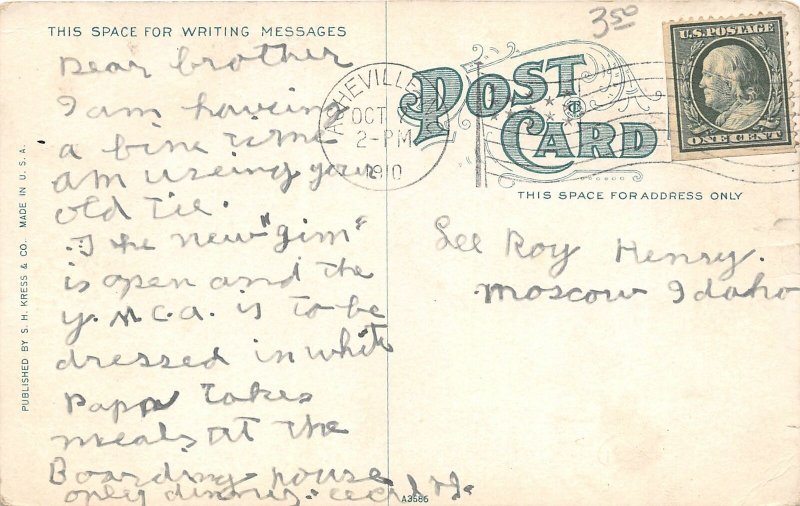 THIS SPACE FOR WRITING MESSAGES
Dear brother
I am having
a fine time
am useing your
old tie.
The new "gim"
is open and the
Y.M.C.A. is to be
dressed in white
Papa takes
meals at the
Boarding house
only dinner. Cecil H.
PUBLISHED BY S. H. KRESS & CO. MADE IN U. S. A.
3 50
ASHEVILLE
OCT
2-PM
1910
POST
CARD
U.S. POSTAGE
ONE CENT
THIS SPACE FOR ADDRESS ONLY
Lee Roy Henry.
Moscow Idaho
A3586